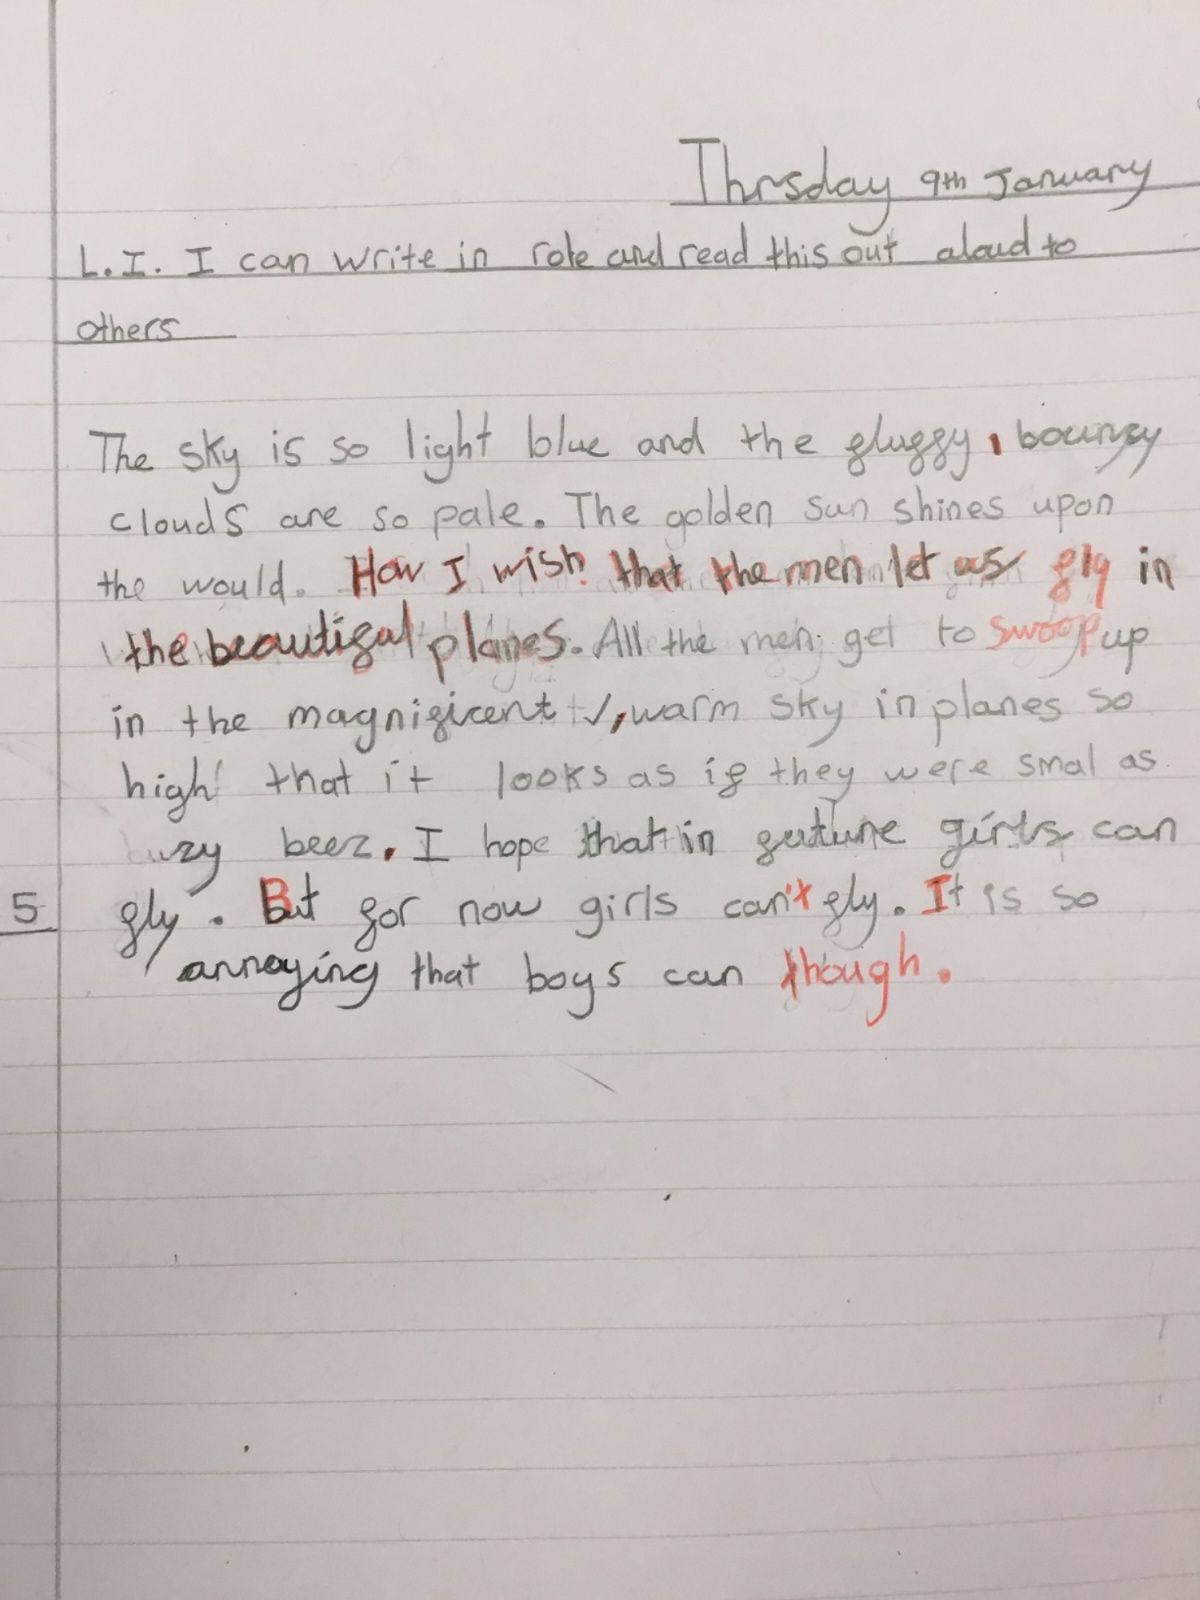 Thrsday 9th January
L.I. I can write in role and read this out aloud to
others
The sky is so light blue and the fluffy, bounsy
clouds are so pale. The golden sun shines upon
the would. How I wish that the men let us fly in
the beautifal planes. All the men get to swoop up
in the magnificent, warm sky in planes so
high that it looks as if they were smal as
beez. I hope that in futune girls can
5 fly. But for now girls can't fly. It is so
annoying that boys can though.